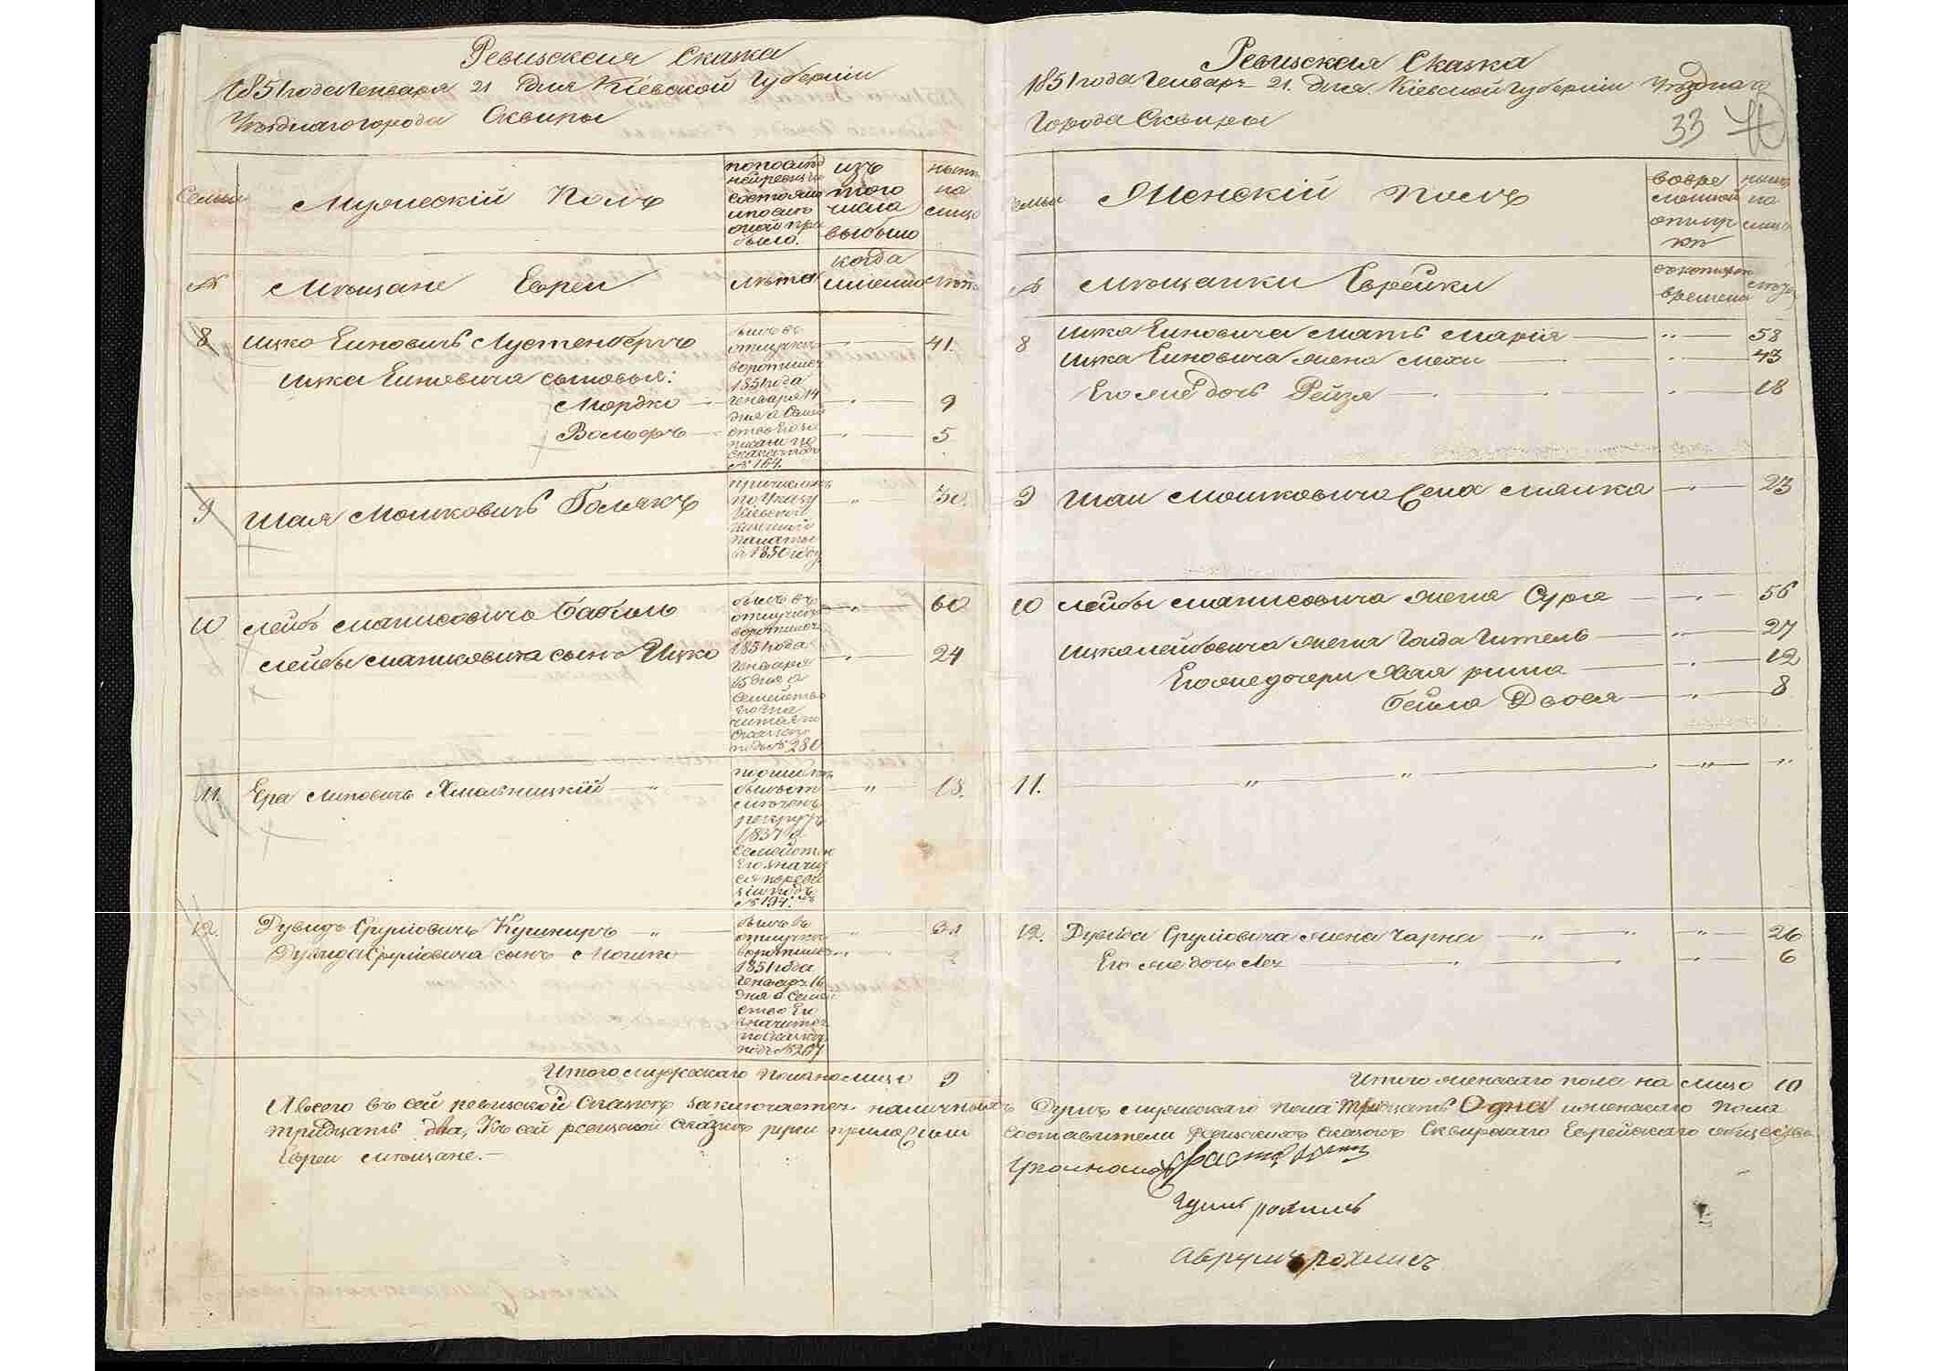 Ревизская Сказка
1851 года Генваря 21 дня Кіевской Губерніи
Уѣзднаго города Сквиры
Семьи
Мужескій Полъ
по послѣд
ней ревизіи
состояло
и послѣ
оной при
было.
изъ
того
числа
выбыло
нынѣ
на
лицо
№
Мѣщане Евреи
лѣта
когда
именно
лѣта
8 Ицко Еиновичъ Лустенбергъ 41.
Ицка Еиновича сыновья:
Мордко 9
Вольфъ 5
былъ въ
отлучкѣ
воротился
1851 года
Генваря 14
дня а Семей
ство Его за
писано по
сказкѣ подъ
№ 164.
9 Шая Мошковичъ Голякъ 30.
причисленъ
по Указу
Кіевской
Казенной
палаты
въ 1850 году
10 Лейбъ 60
Лейбы сынъ Ицко 24
былъ въ
отлучкѣ
воротился
1851 года
Генваря
15 дня а
Семейство
его зна
чится по
Сказкѣ
подъ № 280
11. Хмельницкій 18.
рекрутъ
1837 г.
Семейство
Его значит
ся по реви
зіи подъ
№ 194.
12. Дувидъ Сруліовичъ Кушниръ
Дувида Сруліовича сынъ Мошко
былъ въ
отлучкѣ
воротился
1851 года
Генваря 16
дня а Семей
ство Его
значится
по Сказкѣ
подъ № 267
Итого мужескаго пола на лицо 9
Ревизская Сказка
1851 года Генваря 21. дня Кіевской Губерніи Уѣзднаго
Города Сквиры
33
Семьи
Женскій полъ
во вре
менной
отлуч
кѣ
нынѣ
на
лицо
№
Мѣщанки Еврейки
съ котораго
времени
лѣта
8 Ицка Еиновича мать Марія 58
Ицка Еиновича жена 43
Его же дочь Рейзя 18
9 Шаи Мошковича жена Малка 23
10 Лейбы жена Сура 56
Ицка Лейбовича жена Гитель 27
Его же дочери Хая рима 12
Бейла Двося 8
11.
12. Дувида Сруліовича жена Чарна 26
Его же дочь Лея 6
Итого женскаго пола на лицо 10
А всего въ сей ревизской Сказкѣ заключается наличныхъ Душъ мужескаго пола тридцать Одна и женскаго пола
тридцать два, Къ сей ревизской сказкѣ руки приложили составители ревизскихъ сказокъ Сквирскаго Еврейскаго общества
Евреи мѣщане.